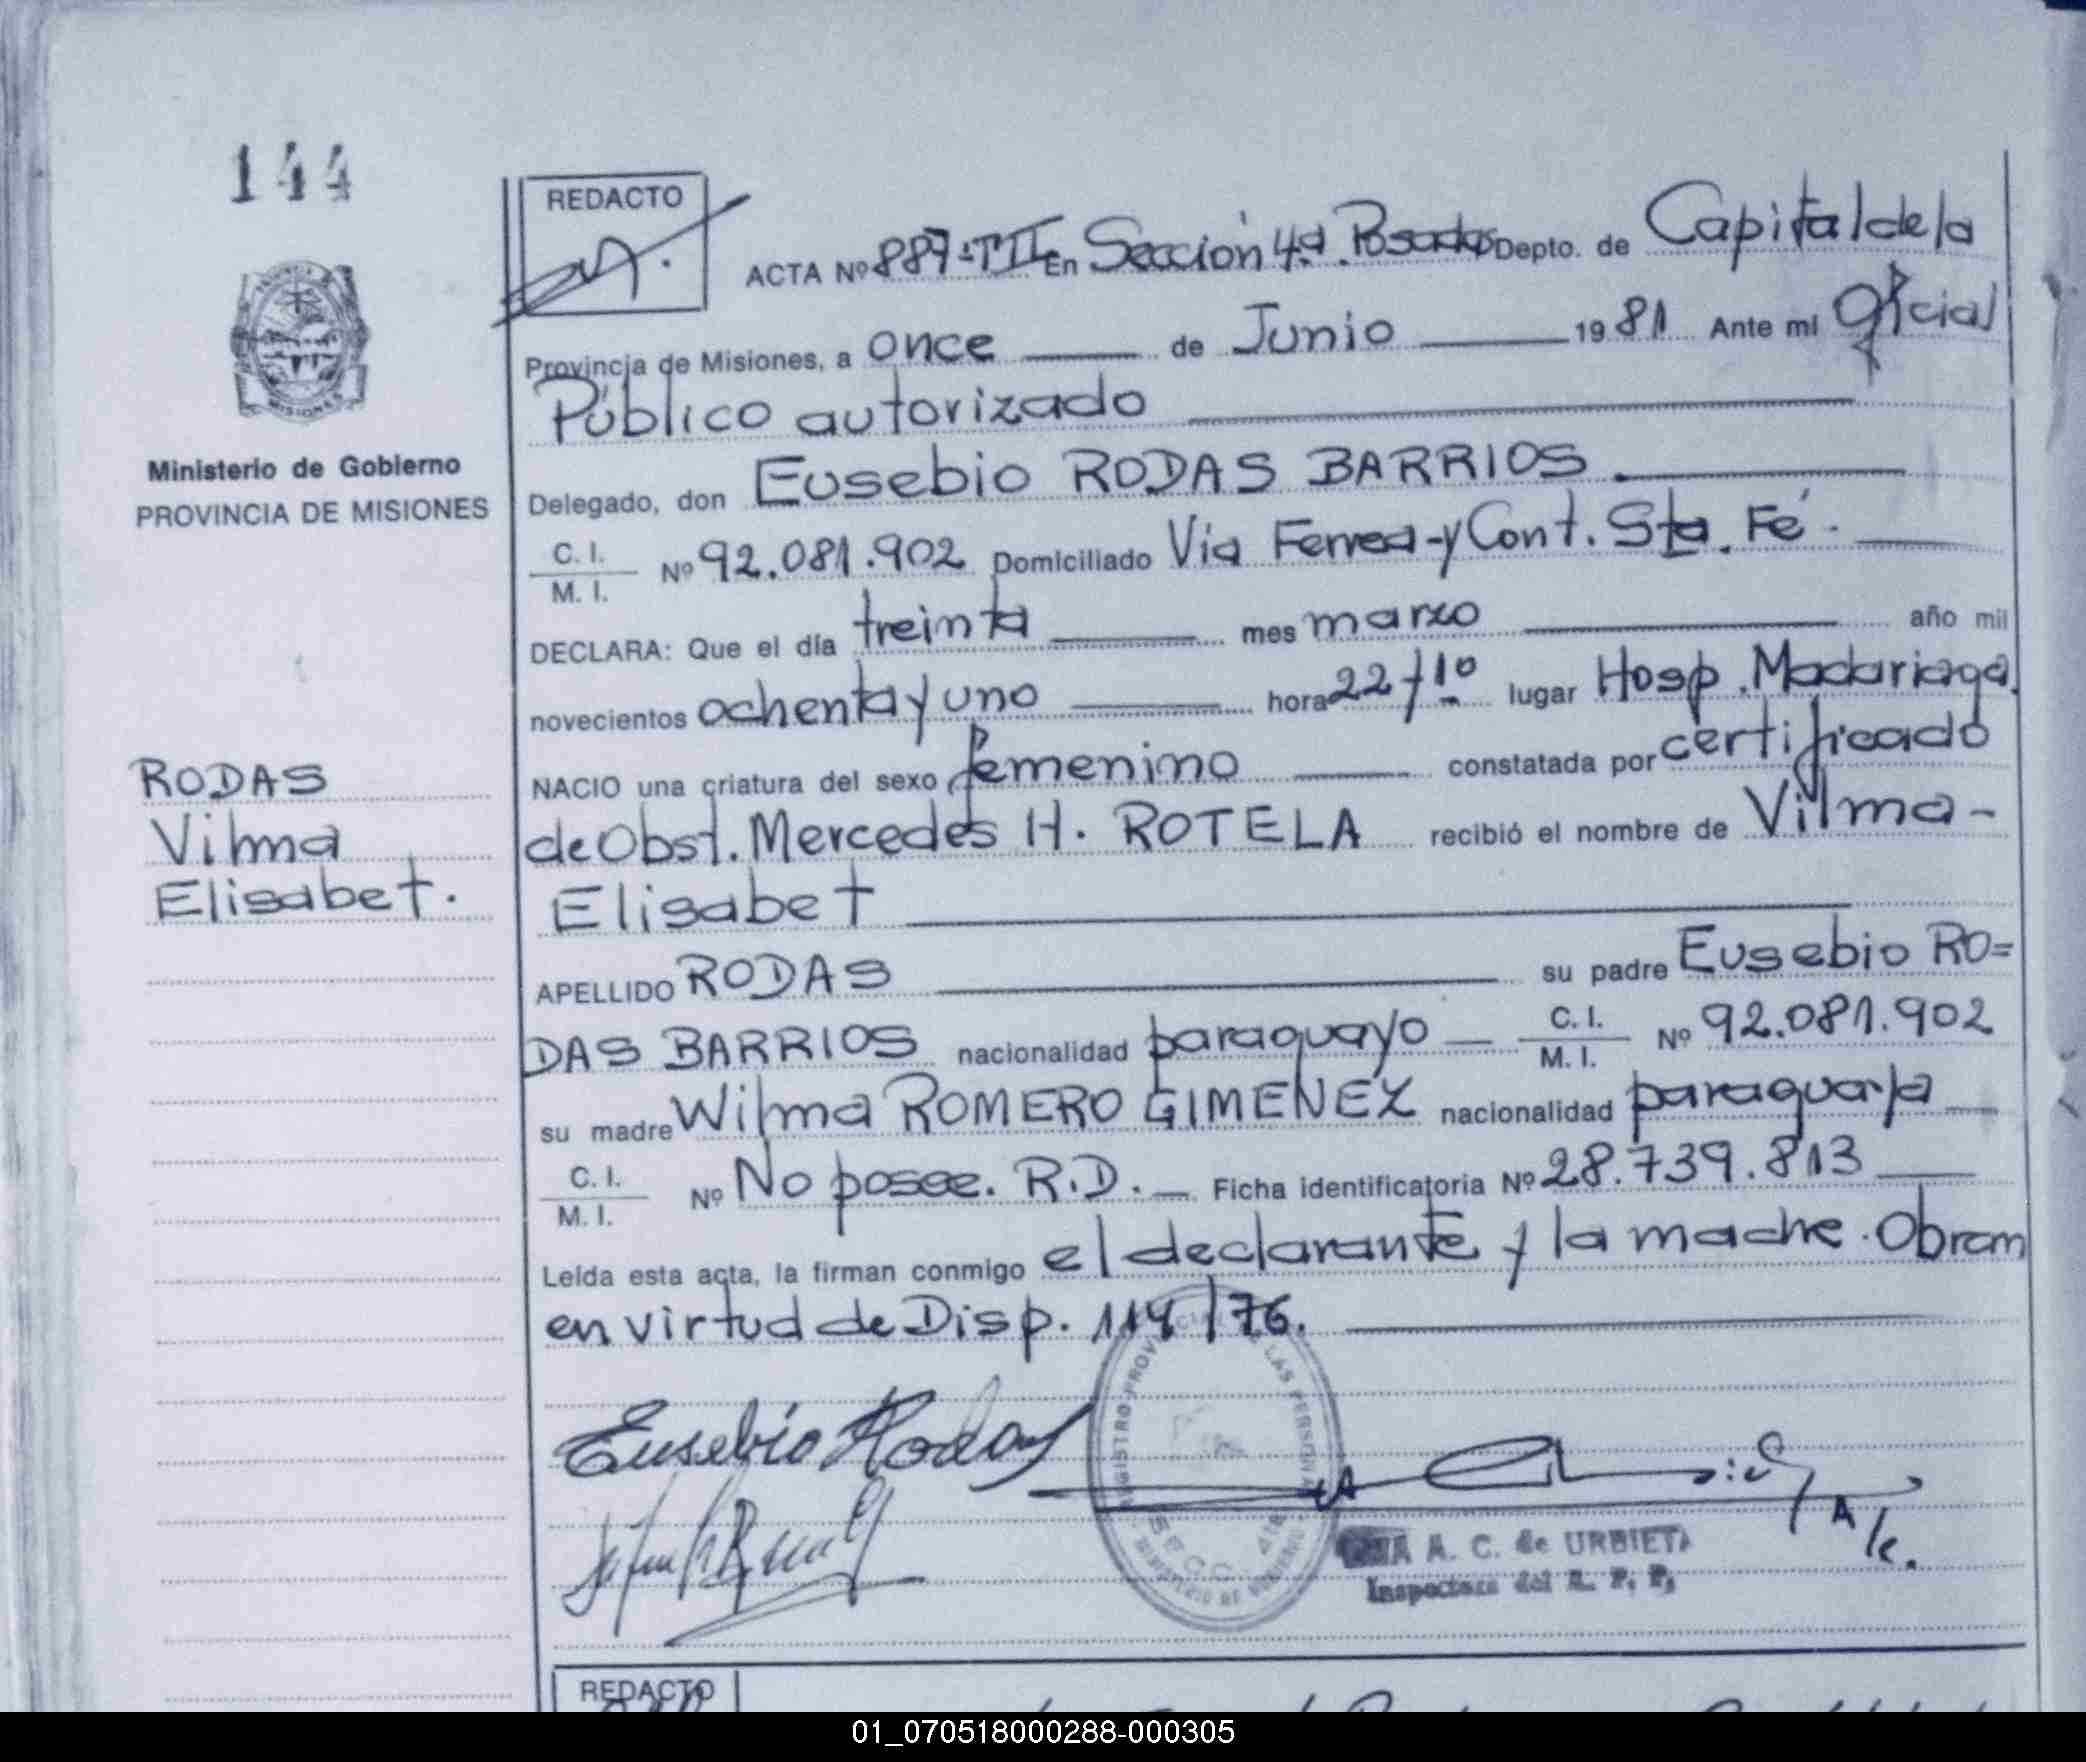 144
REDACTO
ACTA Nº 887-TII En Sección 4.a Posadas Depto. de Capital de la
Provincia de Misiones, a once de Junio 1981 Ante mi Oficial
Público autorizado
Ministerio de Gobierno
PROVINCIA DE MISIONES
Delegado, don Eusebio RODAS BARRIOS
C. I.
M. I.
Nº 92.081.902 Domiciliado Vía Ferrea-y Cont. Sta. Fé.
DECLARA: Que el día treinta mes marzo año mil
novecientos ochenta y uno hora 22/10 lugar Hosp. Madariaga.
RODAS
Vilma
Elisabet.
NACIO una criatura del sexo femenino constatada por certificado
de Obst. Mercedes H. ROTELA recibió el nombre de Vilma-
Elisabet
APELLIDO RODAS su padre Eusebio RO=
DAS BARRIOS nacionalidad paraguayo C. I. M. I. Nº 92.081.902
su madre Wilma ROMERO GIMENEZ nacionalidad paraguaya
C. I.
M. I.
Nº No posee. R.D. Ficha identificatoria Nº 28.739.813
Leída esta acta, la firman conmigo el declarante y la madre. Obran
en virtud de Disp. 114/76.
Eusebio Rodas
REGISTRO PROVINCIAL DE LAS PERSONAS
SECC. 4ta
A. C. de URBIETA
Inspectora del R. P. P.
REDACTO
01_070518000288-000305